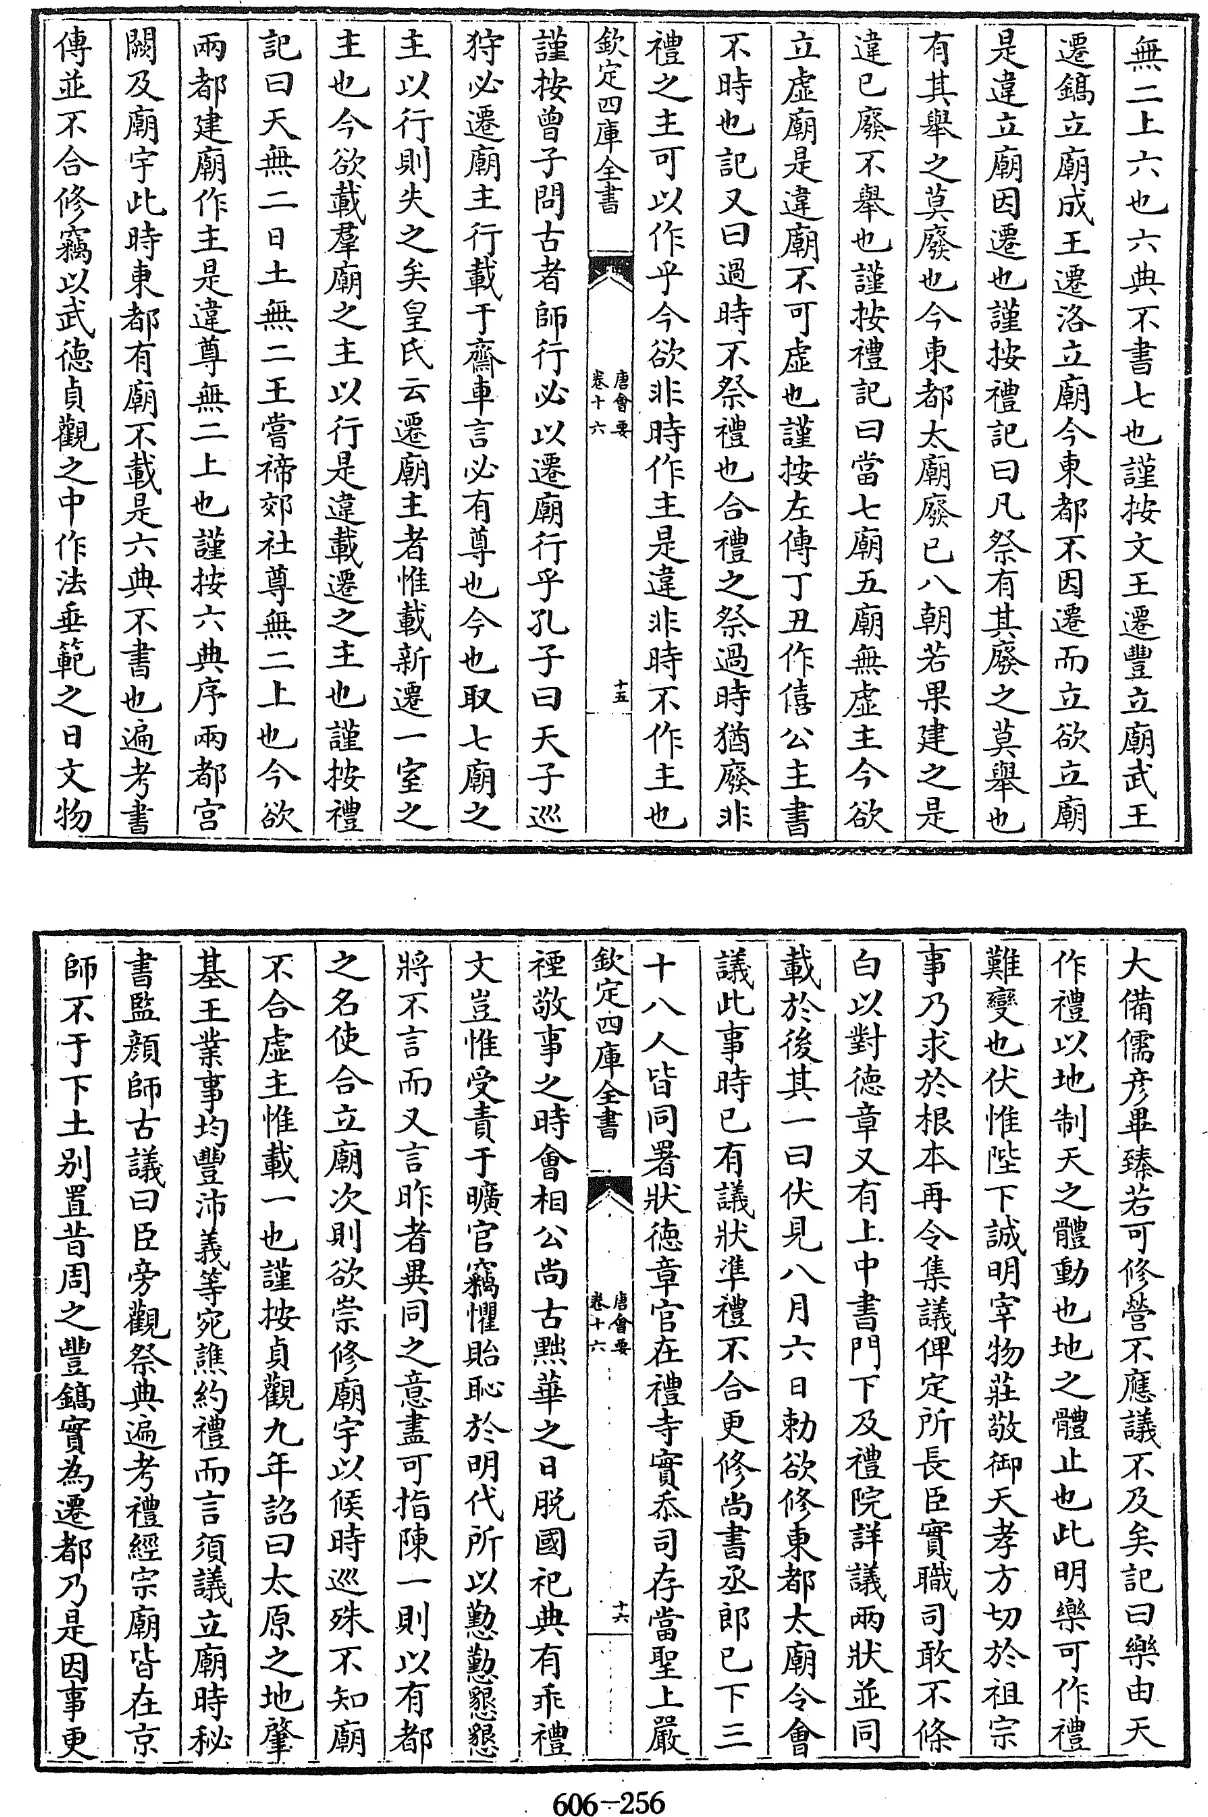 無二上六也六典不書七也謹按文王遷豐立廟武王
遷鎬立廟成王遷洛立廟今東都不因遷而立欲立廟
是違立廟因遷也謹按禮記曰凡祭有其廢之莫舉也
有其舉之莫廢也今東都太廟廢已八朝若果建之是
違已廢不舉也謹按禮記曰當七廟五廟無虛主今欲
立虛廟是違廟不可虛也謹按左傳丁丑作僖公主書
不時也記又曰過時不祭禮也合禮之祭過時猶廢非
禮之主可以作乎今欲非時作主是違非時不作主也
欽定四庫全書
唐會要
卷十六
十五
謹按曾子問古者師行必以遷廟行乎孔子曰天子巡
狩必遷廟主行載于齋車言必有尊也今也取七廟之
主以行則失之矣皇氏云遷廟主者惟載新遷一室之
主也今欲載羣廟之主以行是違載遷之主也謹按禮
記曰天無二日土無二王嘗禘郊社尊無二上也今欲
兩都建廟作主是違尊無二上也謹按六典序兩都宮
闕及廟宇此時東都有廟不載是六典不書也遍考書
傳並不合修竊以武德貞觀之中作法垂範之日文物
大備儒彥畢臻若可修營不應議不及矣記曰樂由天
作禮以地制天之體動也地之體止也此明樂可作禮
難變也伏惟陛下誠明宰物莊敬御天孝方切於祖宗
事乃求於根本再令集議俾定所長臣實職司敢不條
白以對德章又有上中書門下及禮院詳議兩狀並同
載於後其一曰伏見八月六日勅欲修東都太廟令會
議此事時已有議狀準禮不合更修尚書丞郎已下三
十八人皆同署狀德章官在禮寺實忝司存當聖上嚴
欽定四庫全書
唐會要
卷十六
十六
禋敬事之時會相公尚古黜華之日脫國祀典有乖禮
文豈惟受責于曠官竊懼貽恥於明代所以懃懃懇懇
將不言而又言昨者異同之意盡可指陳一則以有都
之名使合立廟次則欲崇修廟宇以候時巡殊不知廟
不合虛主惟載一也謹按貞觀九年詔曰太原之地肇
基王業事均豐沛義等宛譙約禮而言須議立廟時秘
書監顏師古議曰臣旁觀祭典遍考禮經宗廟皆在京
師不于下土別置昔周之豐鎬實為遷都乃是因事更
606-256